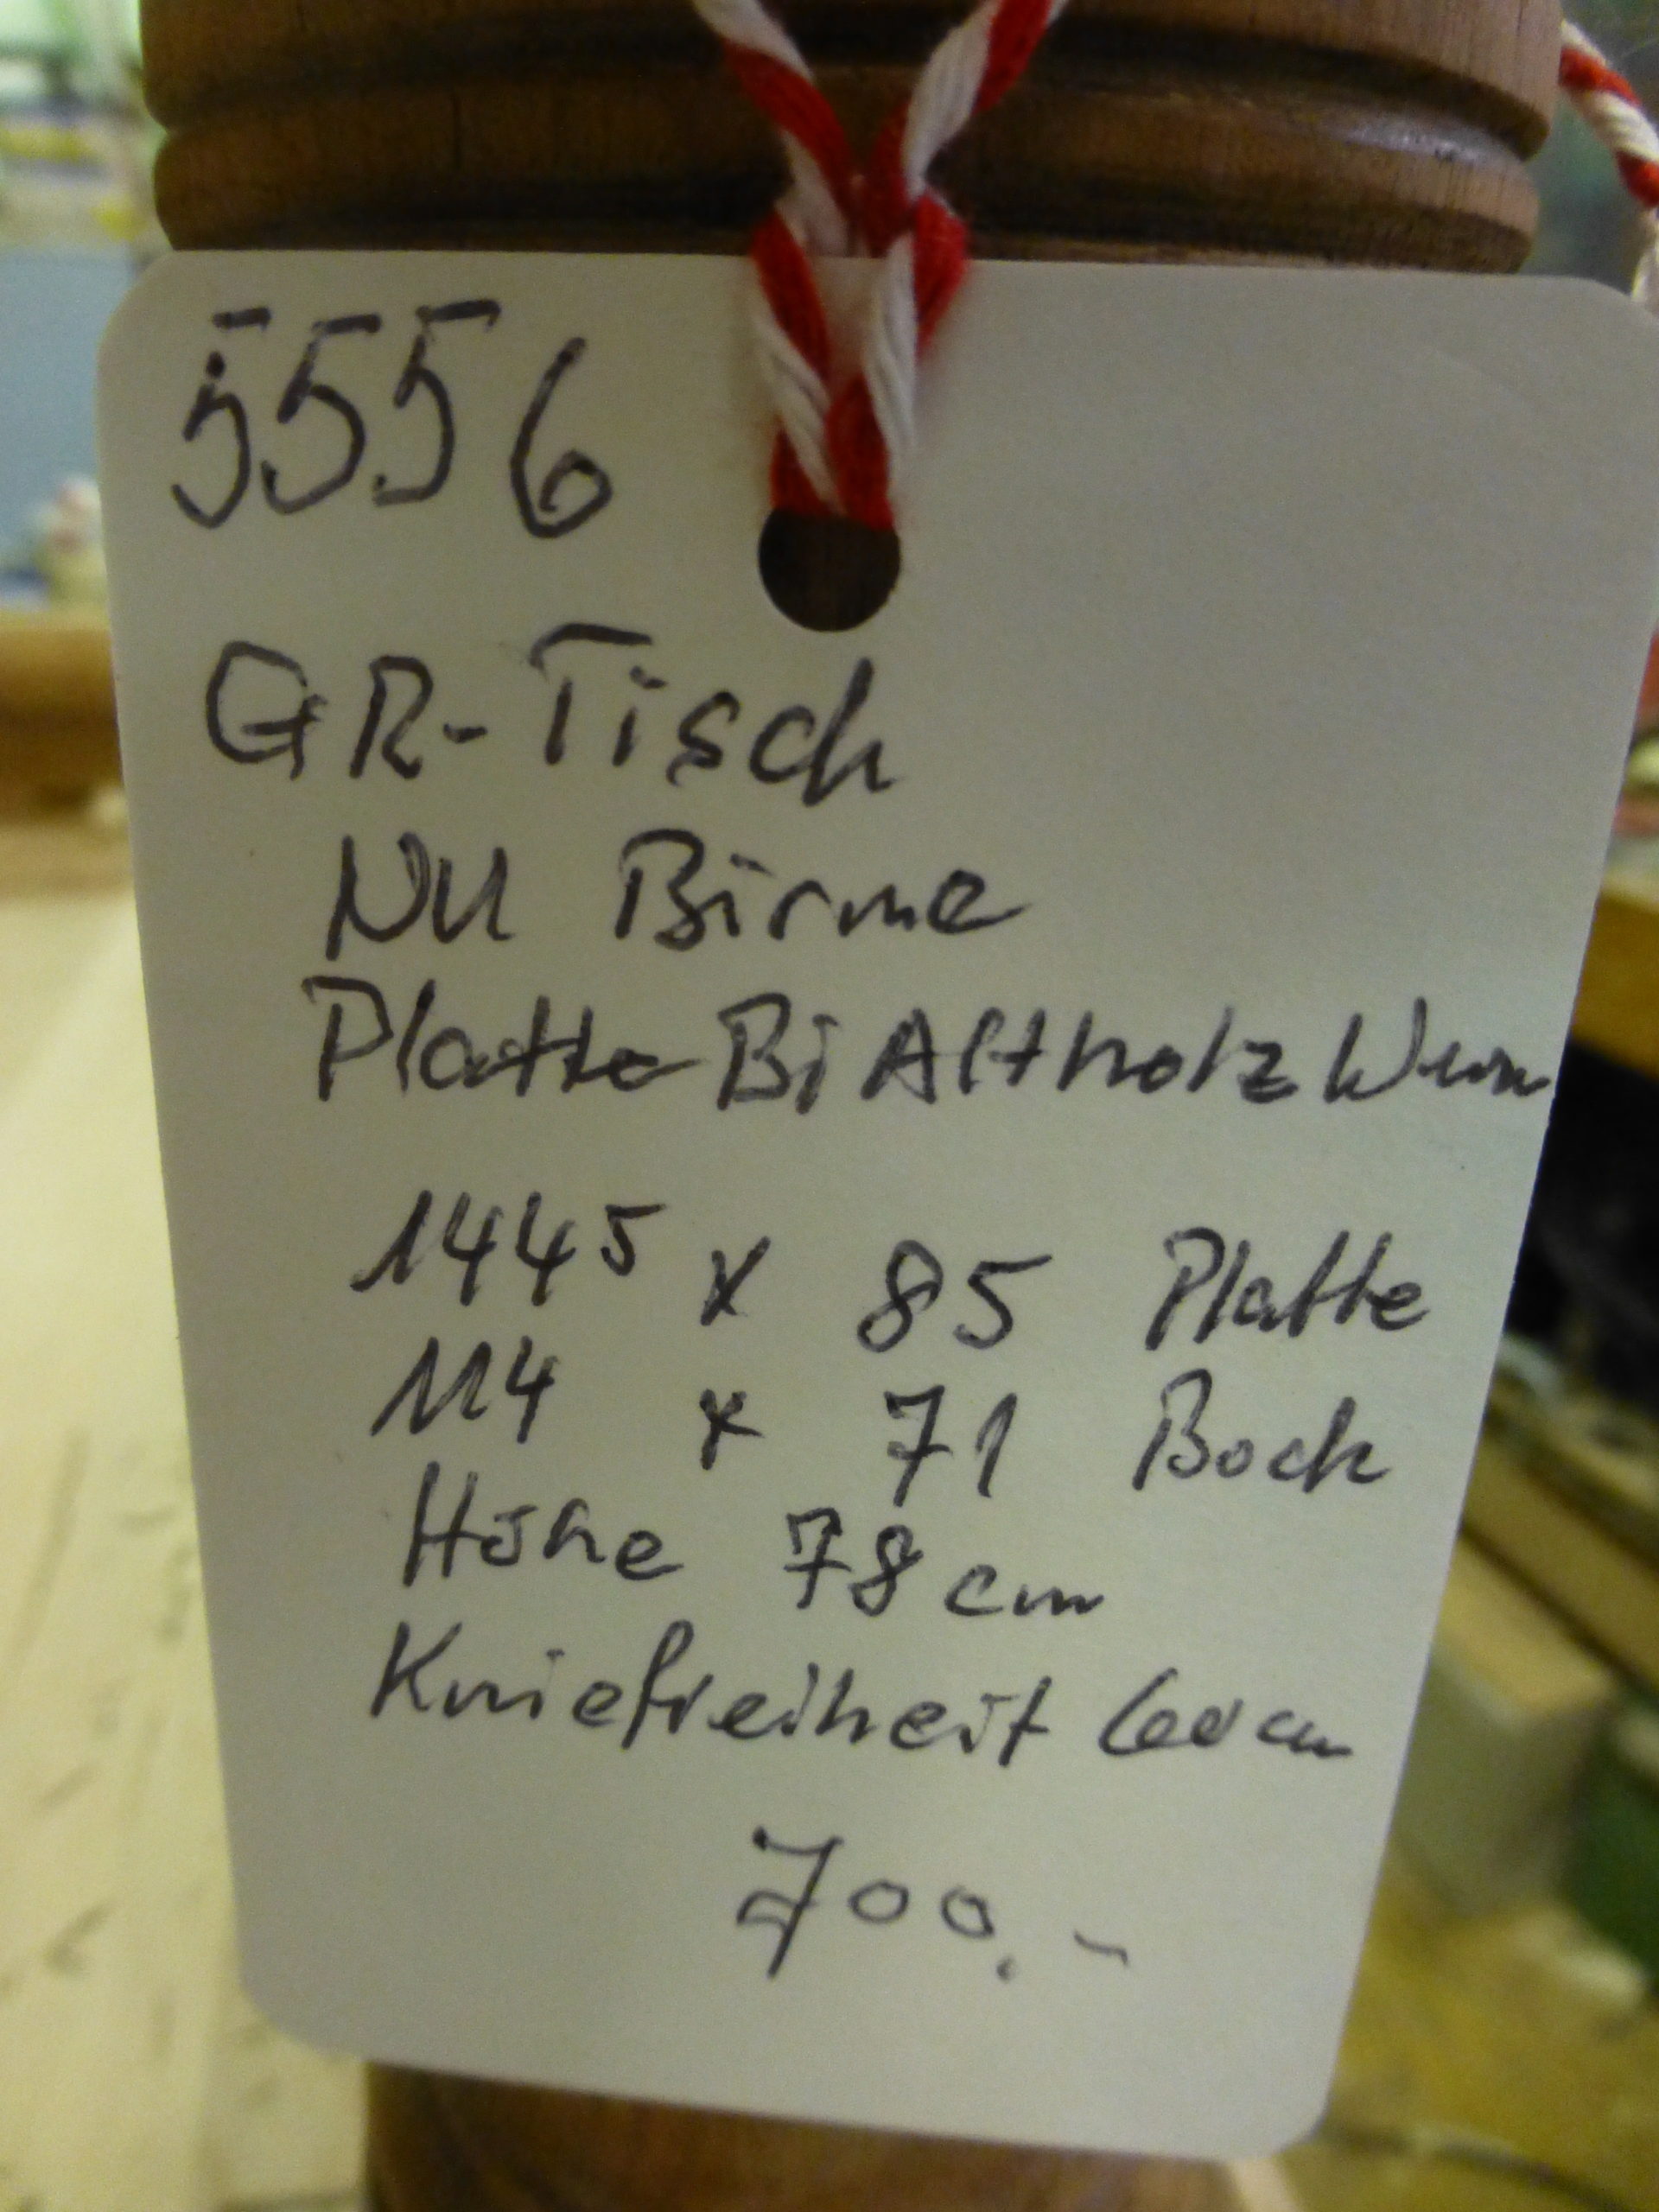 5556
GR-Tisch
NU Birne
Platte Bi Altholz Wurm
144⁵ x 85 Platte
114 x 71 Bock
Höhe 78 cm
Kniefreiheit 60 cm
700.-